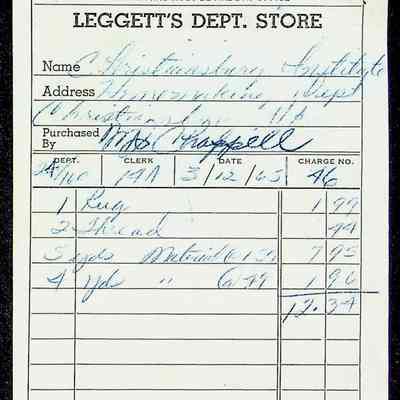 LEGGETT'S DEPT. STORE
Name Christiansburg Institute
Address Homemaking Dept
Christiansburg VA
Purchased By Mrs Chappell
DEPT. CLERK DATE CHARGE NO.
14A 3/12/63 46
1 Rug 1 99
2 Thread 44
5 yds Material @ 1 59 7 95
4 yds " @ 49 1 96
12.34